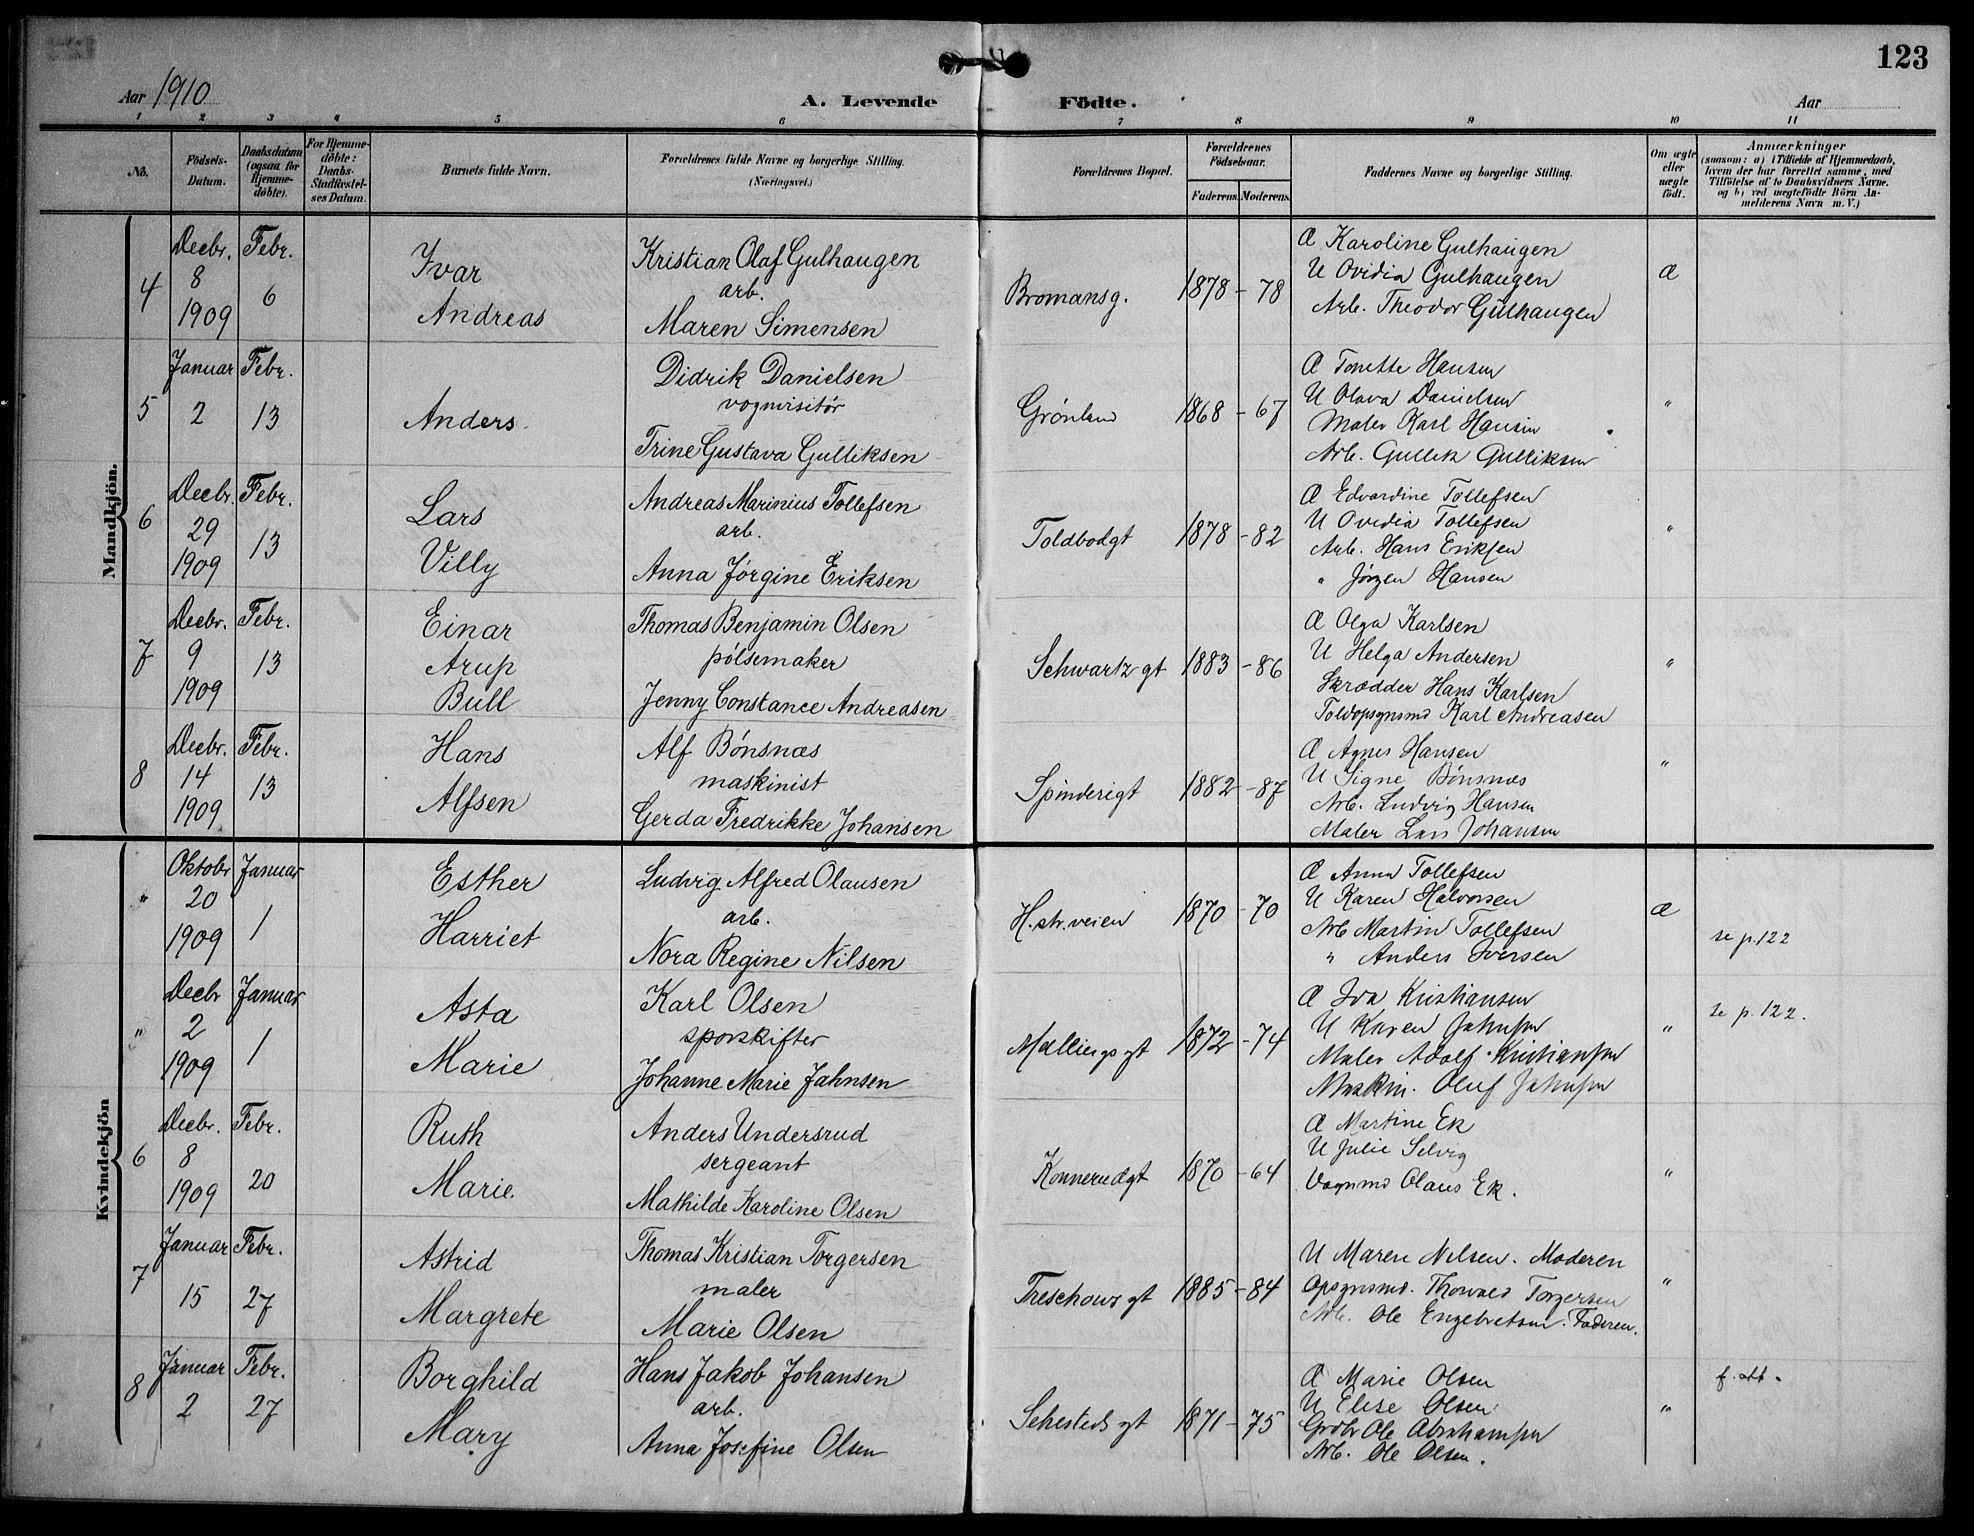 123
Aar 1910
A. Levende Födte.
Aar
1 2 3 4 5 6 7 8 9 10 11
No.
Födsels-
Datum.
Daabsdatum
(ogsaa for
Hjemme-
döbte).
For Hjemme-
döbte:
Daabs-
Stadfæstel-
ses Datum.
Barnets fulde Navn.
Forældrenes fulde Navne og borgerlige Stilling.
(Næringsvei.)
Forældrenes Bopæl.
Forældrenes
Födselsaar.
Faderens. Moderens.
Faddernes Navne og borgerlige Stilling.
Om ægte
eller
uægte
födt.
Anmærkninger
(saasom: a) i Tilfælde af Hjemmedaab,
hvem der har forrettet samme, med
Tilföielse af to Daabsvidners Navne.
og b) ved uægtefödte Börn An-
melderens Navn m. V.)
Mandkjön.
4
Decbr.
8
1909
Febr.
6
Ivar
Andreas
Kristian Olaf Gulhaugen
arb.
Maren Simensen
Bromansg.
1878 - 78
Æ Karoline Gulhaugen
U Ovidia Gulhaugen
Arb. Theodor Gulhaugen
Æ
5
Januar
2
Febr.
13
Anders
Didrik Danielsen
vognvisitør
Trine Gustava Gulliksen
Grønland
1868 - 67
Æ Tonette Hansen
U Olava Danielsen
Maler Karl Hansen
Arb. Gullik Gulliksen
"
6
Decbr.
29
1909
Febr.
13
Lars
Villy
Andreas Marinius Tollefsen
arb.
Anna Jørgine Eriksen
Toldbodgt
1878 - 82
Æ Edvardine Tollefsen
U Ovidia Tollefsen
Arb. Hans Eriksen
" Jørgen Hansen
"
7
Decbr.
9
1909
Febr.
13
Einar
Arup
Bull
Thomas Benjamin Olsen
pølsemaker
Jenny Constance Andreasen
Schwartz gt
1883 - 86
Æ Olga Karlsen
U Helga Andersen
Skrædder Hans Karlsen
Toldopsynsmd Karl Andreasen
"
8
Decbr.
14
1909
Febr.
13
Hans
Alfsen
Alf Bønsnæs
maskinist
Gerda Fredrikke Johansen
Spinderigt
1882 - 87
Æ Agnes Hansen
U Signe Bønsnæs
Arb. Ludvig Hansen
Maler Lars Johansen
"
Kvindekjön
"
Oktobr
20
1909
Januar
1
Esther
Harriet
Ludvig Alfred Olausen
arb.
Nora Regine Nilsen
H.str.veien
1870 - 70
Æ Anna Tollefsen
U Karen Halvorsen
Arb Martin Tollefsen
" Anders Iversen
Æ
se p. 122
"
Decbr
2
1909
Januar
1
Asta
Marie
Karl Olsen
sporskifter
Johanne Marie Jahnsen
Mælliergs gt
1872 - 74
Æ Ida Kristiansen
U Karen Jahnsen
Maler Adolf Kristiansen
Maskin. Oluf Jahnsen
"
se p. 122.
6
Decbr.
8
1909
Febr.
20
Ruth
Marie.
Anders Undersrud
sergeant
Mathilde Karoline Olsen
Konnerudgt
1870 - 64
Æ Martine Ek
U Julie Selvig
Vognmd Olaus Ek.
"
7
Januar
15
Febr.
27
Astrid
Margrete
Thomas Kristian Torgersen
maler
Marie Olsen
Treschows gt
1885 - 84
U Maren Nilsen. Moderen
Opsynsmd. Thorvald Torgersen
Arb. Ole Engebretsen. Faderen.
"
8
Januar
2
Febr.
27
Borghild
Mary
Hans Jakob Johansen
arb.
Anna Josefine Olsen
Sehesteds gt
1871 - 75
Æ Marie Olsen
U Elise Olsen
Grdbr Ole Abrahamsen
Arb. Ole Olsen.
"
f. att.